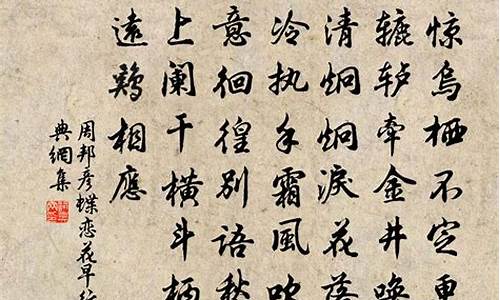 惊乌栖不定更
辘轳牵金井唤
清炯炯淚花落
冷执手霜風吹
意徊徨别语愁
上阑干横斗柄
遠鷄相應
周邦彦蝶恋花早行
典網集